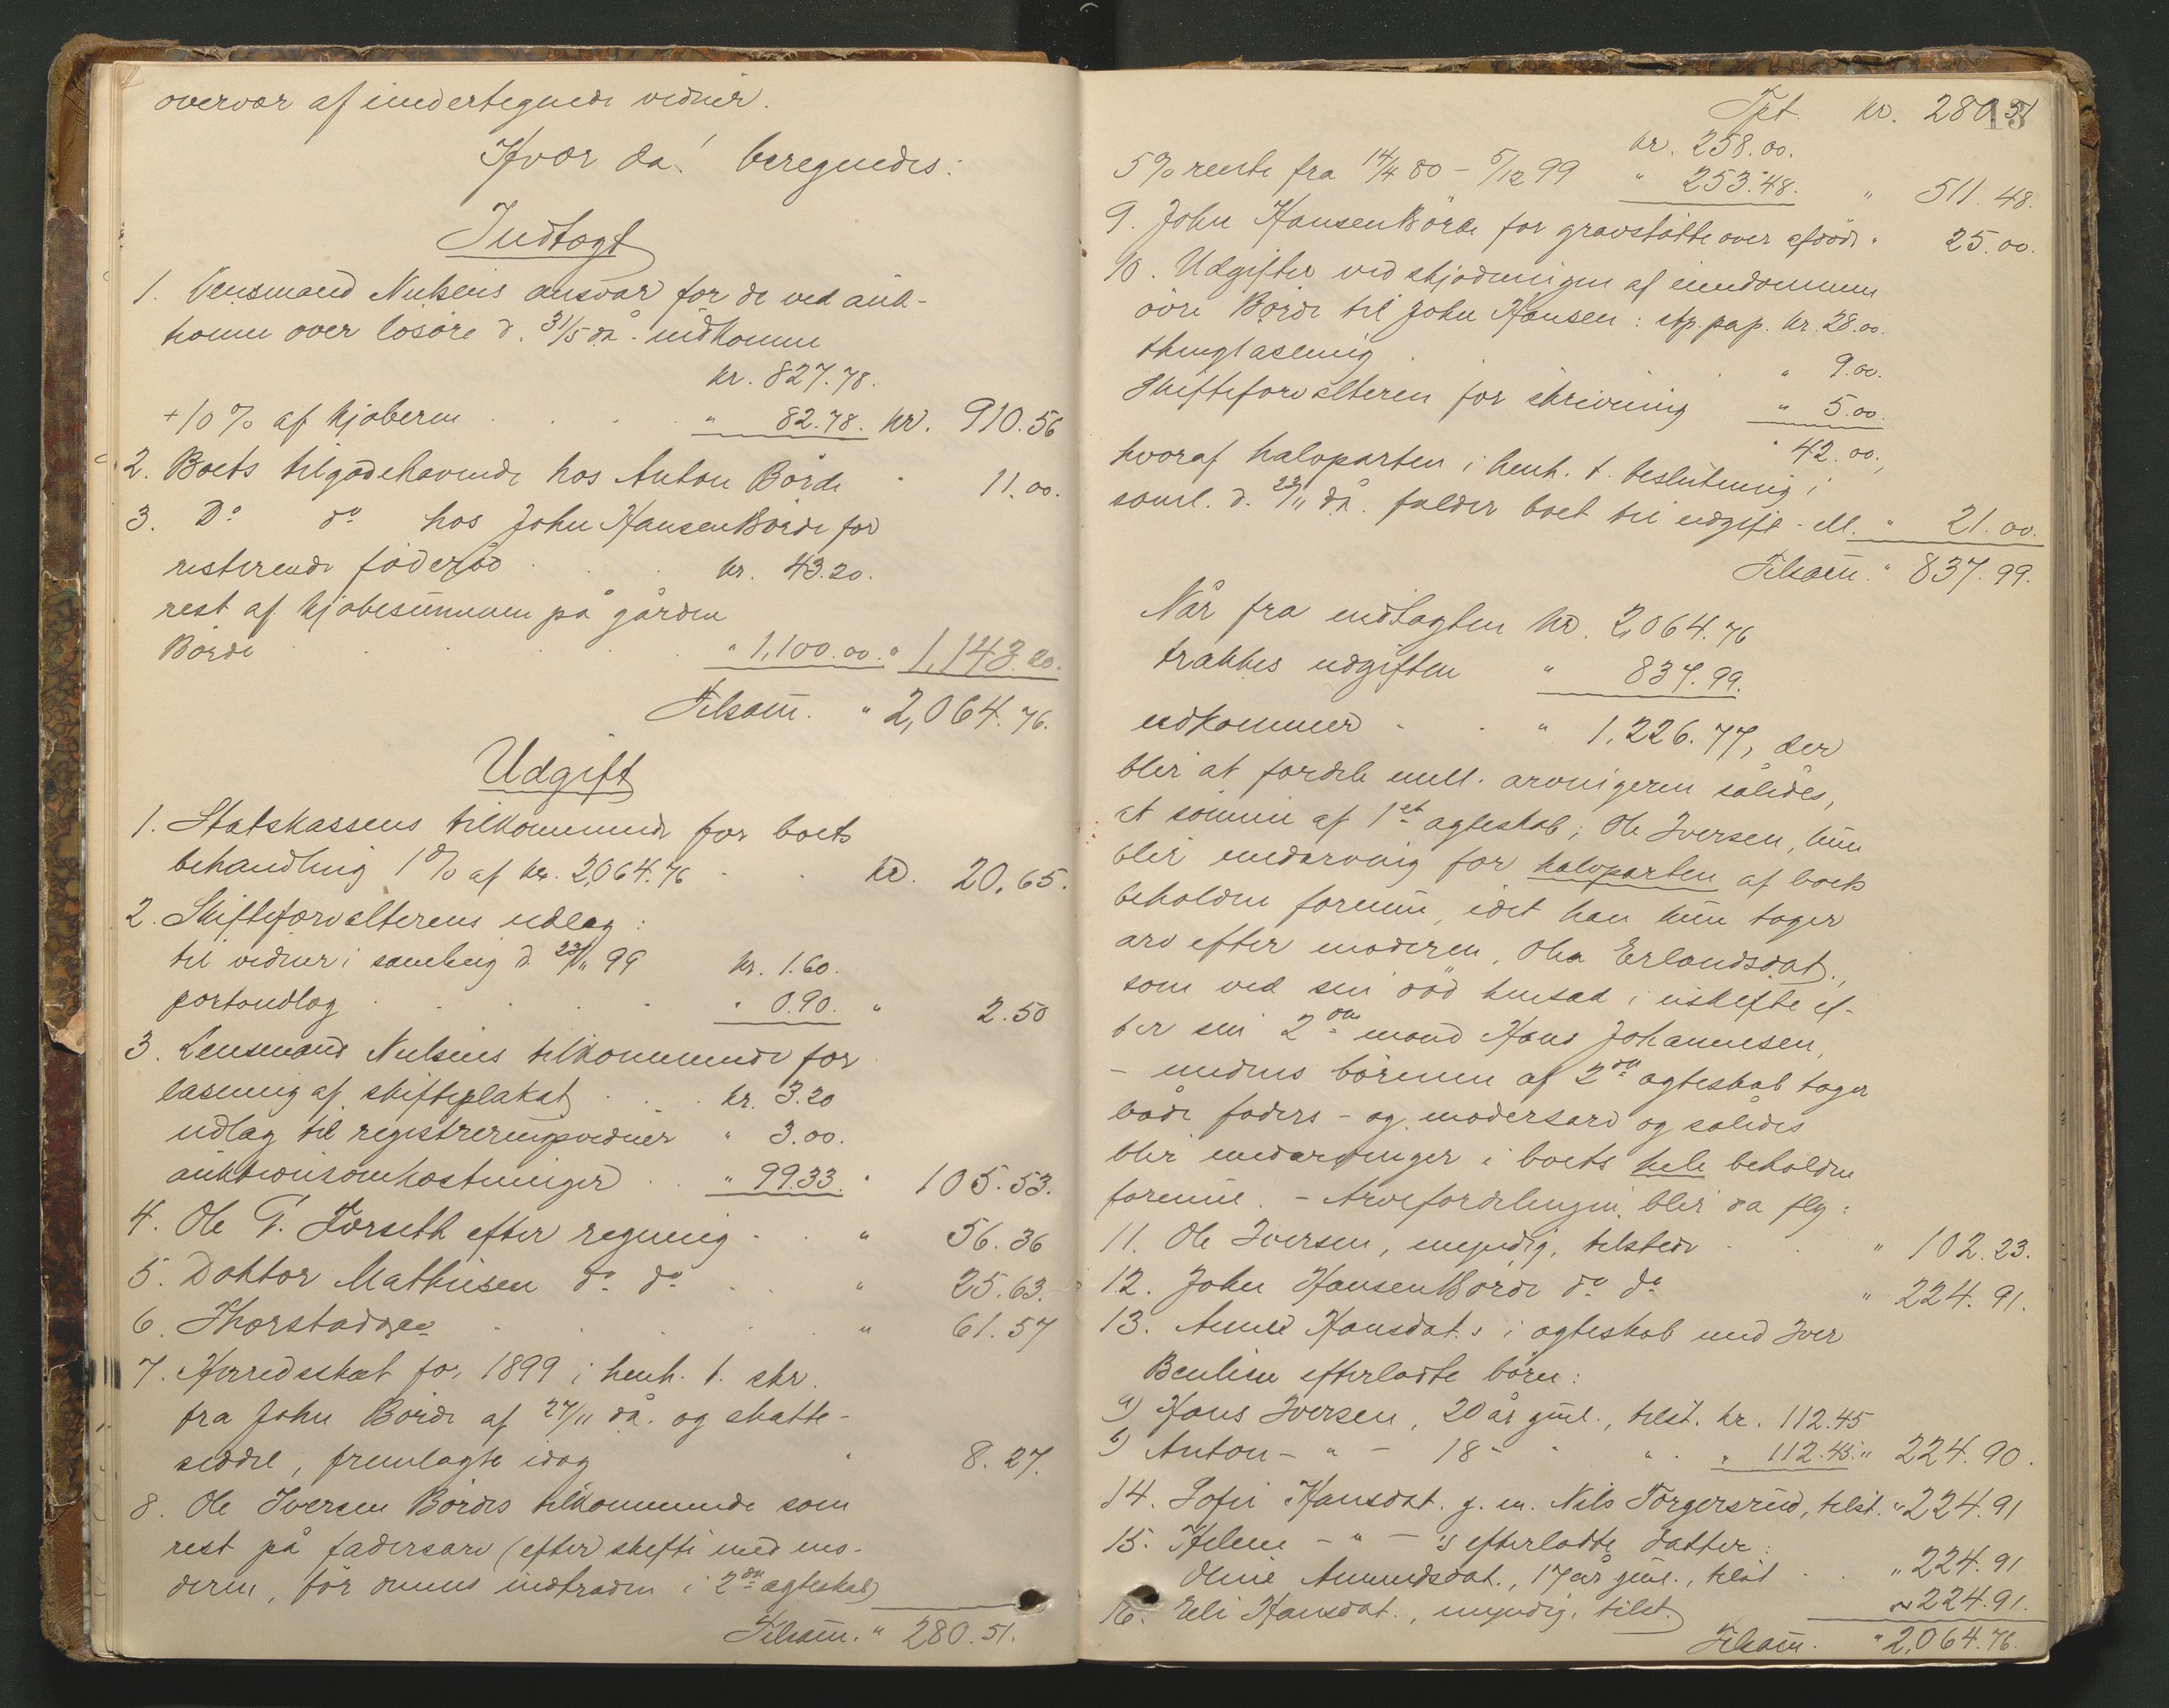 overvær af undertegnede vidner.
Hvor da! beregnedes:
Indtægt
1. Lensmand Nielsens ansvar för de ved auk-
tionen over lösöre d. 31/5 då. indkomne
kr. 827.78.
+10% af kjöberne . . . " 82.78. kr. 910.56
2. Boets tilgodehavende hos Anton Börde " 11.00.
3. Do do hos John Hansen Börde for
resterende föderåd . . kr. 43.20.
rest af kjöbesummen på gården
Börde . . . . . " 1,100.00. " 1,143.20.
Tilsam. " 2,064.76.
Udgift
1. Statskassens tilkommende for boets
behandling 1% af kr. 2,064.76 . . kr. 20.65.
2. Skifteforvalterens udlæg:
til vidner i samling d. 23/11 99 kr. 1.60.
portoudlæg . . . . " 0.90. " 2.50
3. Lensmand Nielsens tilkommende for
læsning af skifteplakat . . . kr. 3.20
udlæg til registreringsvidner " 3.00.
auktionsomkostninger . . " 99.33. " 105.53.
4. Ole G. Forseth efter regning . . " 56.36
5. Doktor Mathiesen do. do. . . " 25.63.
6. . . . . " 61.57
7. Herredsskat for 1899 i henh. t. skr.
fra John Börde af 27/11 då. og skatte-
seddel, fremlagte idag " 8.27.
8. Ole Iversen Bördes tilkommende som
rest på fædrearv (efter skifte med mo-
deren, för dennes indtræden i 2det ægteskab)
Tilsam. " 280.51.
13
Tpt. kr. 280.51
kr. 258.00.
5% rente fra 14/4 80 - 5/12 99 " 253.48. " 511.48.
9. John Hansen Börde for gravstötte over afdöde " 25.00.
10. Udgifter ved skjödningen af eiendommen
övre Börde til John Hansen: stp. pap. kr. 28.00.
thinglæsning . . . " 9.00.
Skifteforvalteren for skrivning " 5.00.
" 42.00.,
hvoraf halvparten i henh. t. beslutning i
saml. d. 23/11 då. falder boet til udgift - el. " 21.00.
Tilsam. " 837.99.
Når fra indtægten kr. 2,064.76
trækkes udgiften " 837.99.
udkommer . . " 1,226.77, der
blir at fordele mell. arvingerne således,
at sönnen af 1ste ægteskab; Ole Iversen, kun
blir medarving for halvparten af boets
beholdne formue, idet han kun tager
arv efter moderen, Olea Erlandsdat.,
som ved sin död hensad i uskifte ef-
ter sin 2den mand Hans Johannesen,
- medens börnene af 2det ægteskab tager
både faders- og modersarv og således
blir medarvinger i boets hele beholdne
formue. - Arvefordelingen blir da flg:
11. Ole Iversen, myndig, tilstede . . " 102.23.
12. John Hansen Börde do do " 224.91.
13. Anne Hansdat.s i ægteskab med Iver
Bentsen efterladte börn:
a) Hans Iversen, 20 år gml., tilst. kr. 112.45
b) Anton - " - 18 - " " . " 112.45. " 224.90.
14. Sofie Hansdat. g. m. Nils Torgersrud, tilst. " 224.91
15. Helene - " - 's efterladte datter:
Oline Amundsdat., 17 år gml., tilst . . " 224.91
16. Eli Hansdat., myndig, tilst. " 224.91.
Tilsam. " 2,064.76.